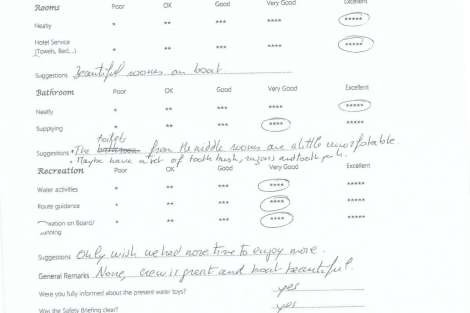 Rooms Poor OK Good Very Good Excellent
Neatly * ** *** **** *****
Hotel Service
(Towels, Bed...) * ** *** **** *****
Suggestions Beautiful rooms on boat
Bathroom Poor OK Good Very Good Excellent
Neatly * ** *** **** *****
Supplying * ** *** **** *****
toilets
Suggestions • The bathroom from the middle rooms are a little uncomfortable
• Maybe have a kit of tooth brush, razors and tooth
Recreation Poor OK Good Very Good Excellent
Water activities * ** *** **** *****
Route guidance * ** *** **** *****
on Board/ * ** *** **** *****
Suggestions Only wish we had more time to enjoy more.
General Remarks None, crew is great and boat beautiful.
Were you fully informed about the present water toys? yes
Was the Safety Briefing clear? yes